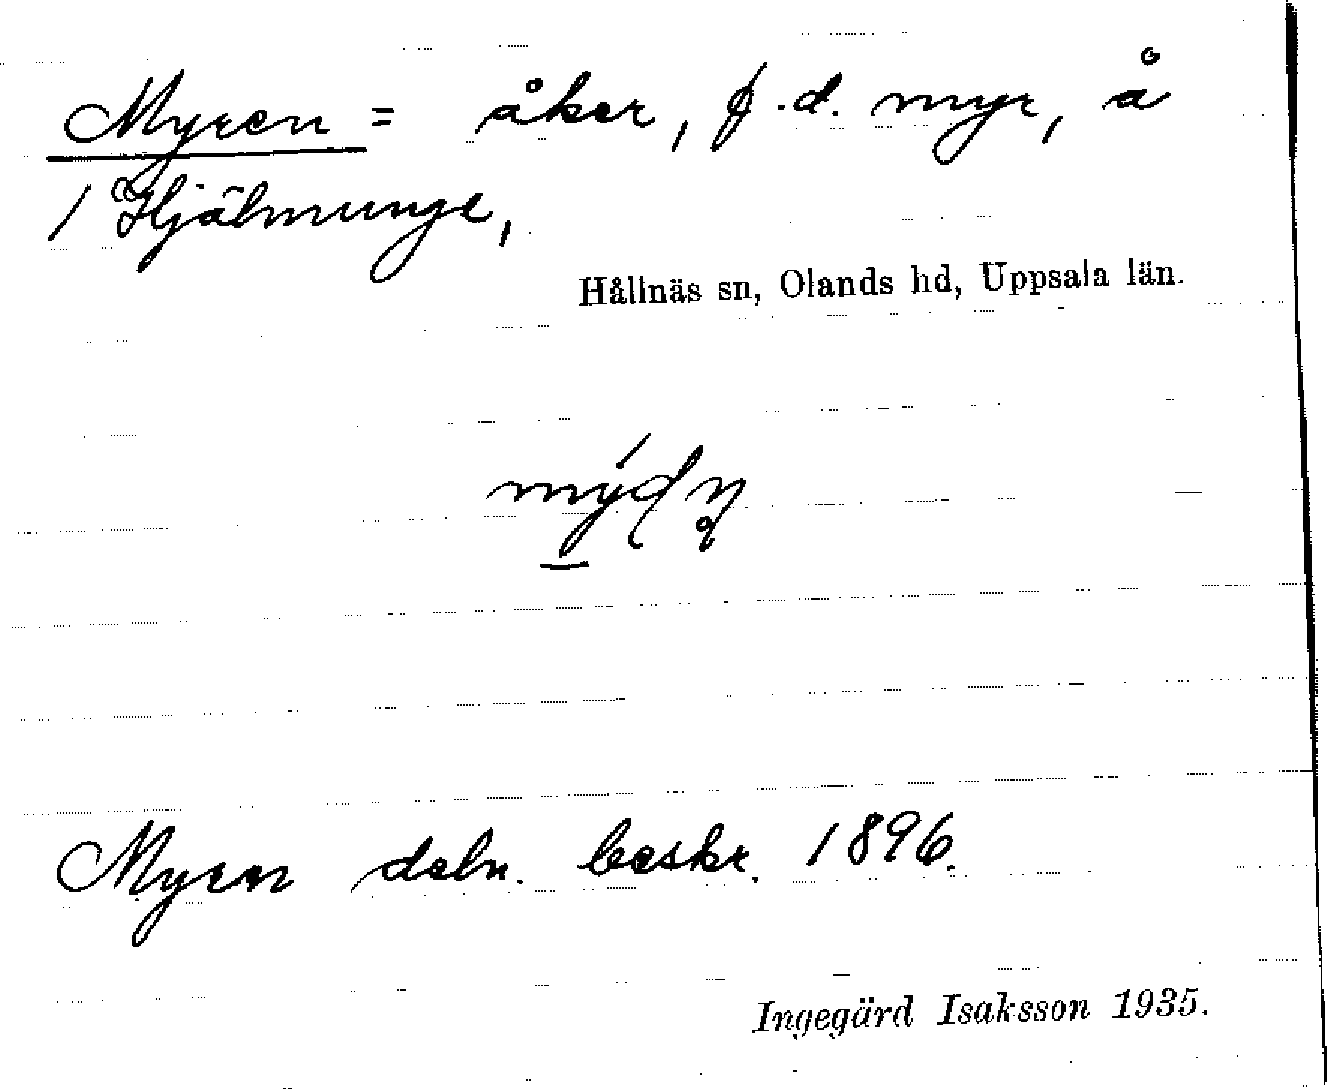 Myren = åker, f.d. myr, å
1 Hjälmunge,
Hållnäs sn, Olands hd, Uppsala län.
Myren deln. beskr. 1896.
Ingegärd Isaksson 1935.